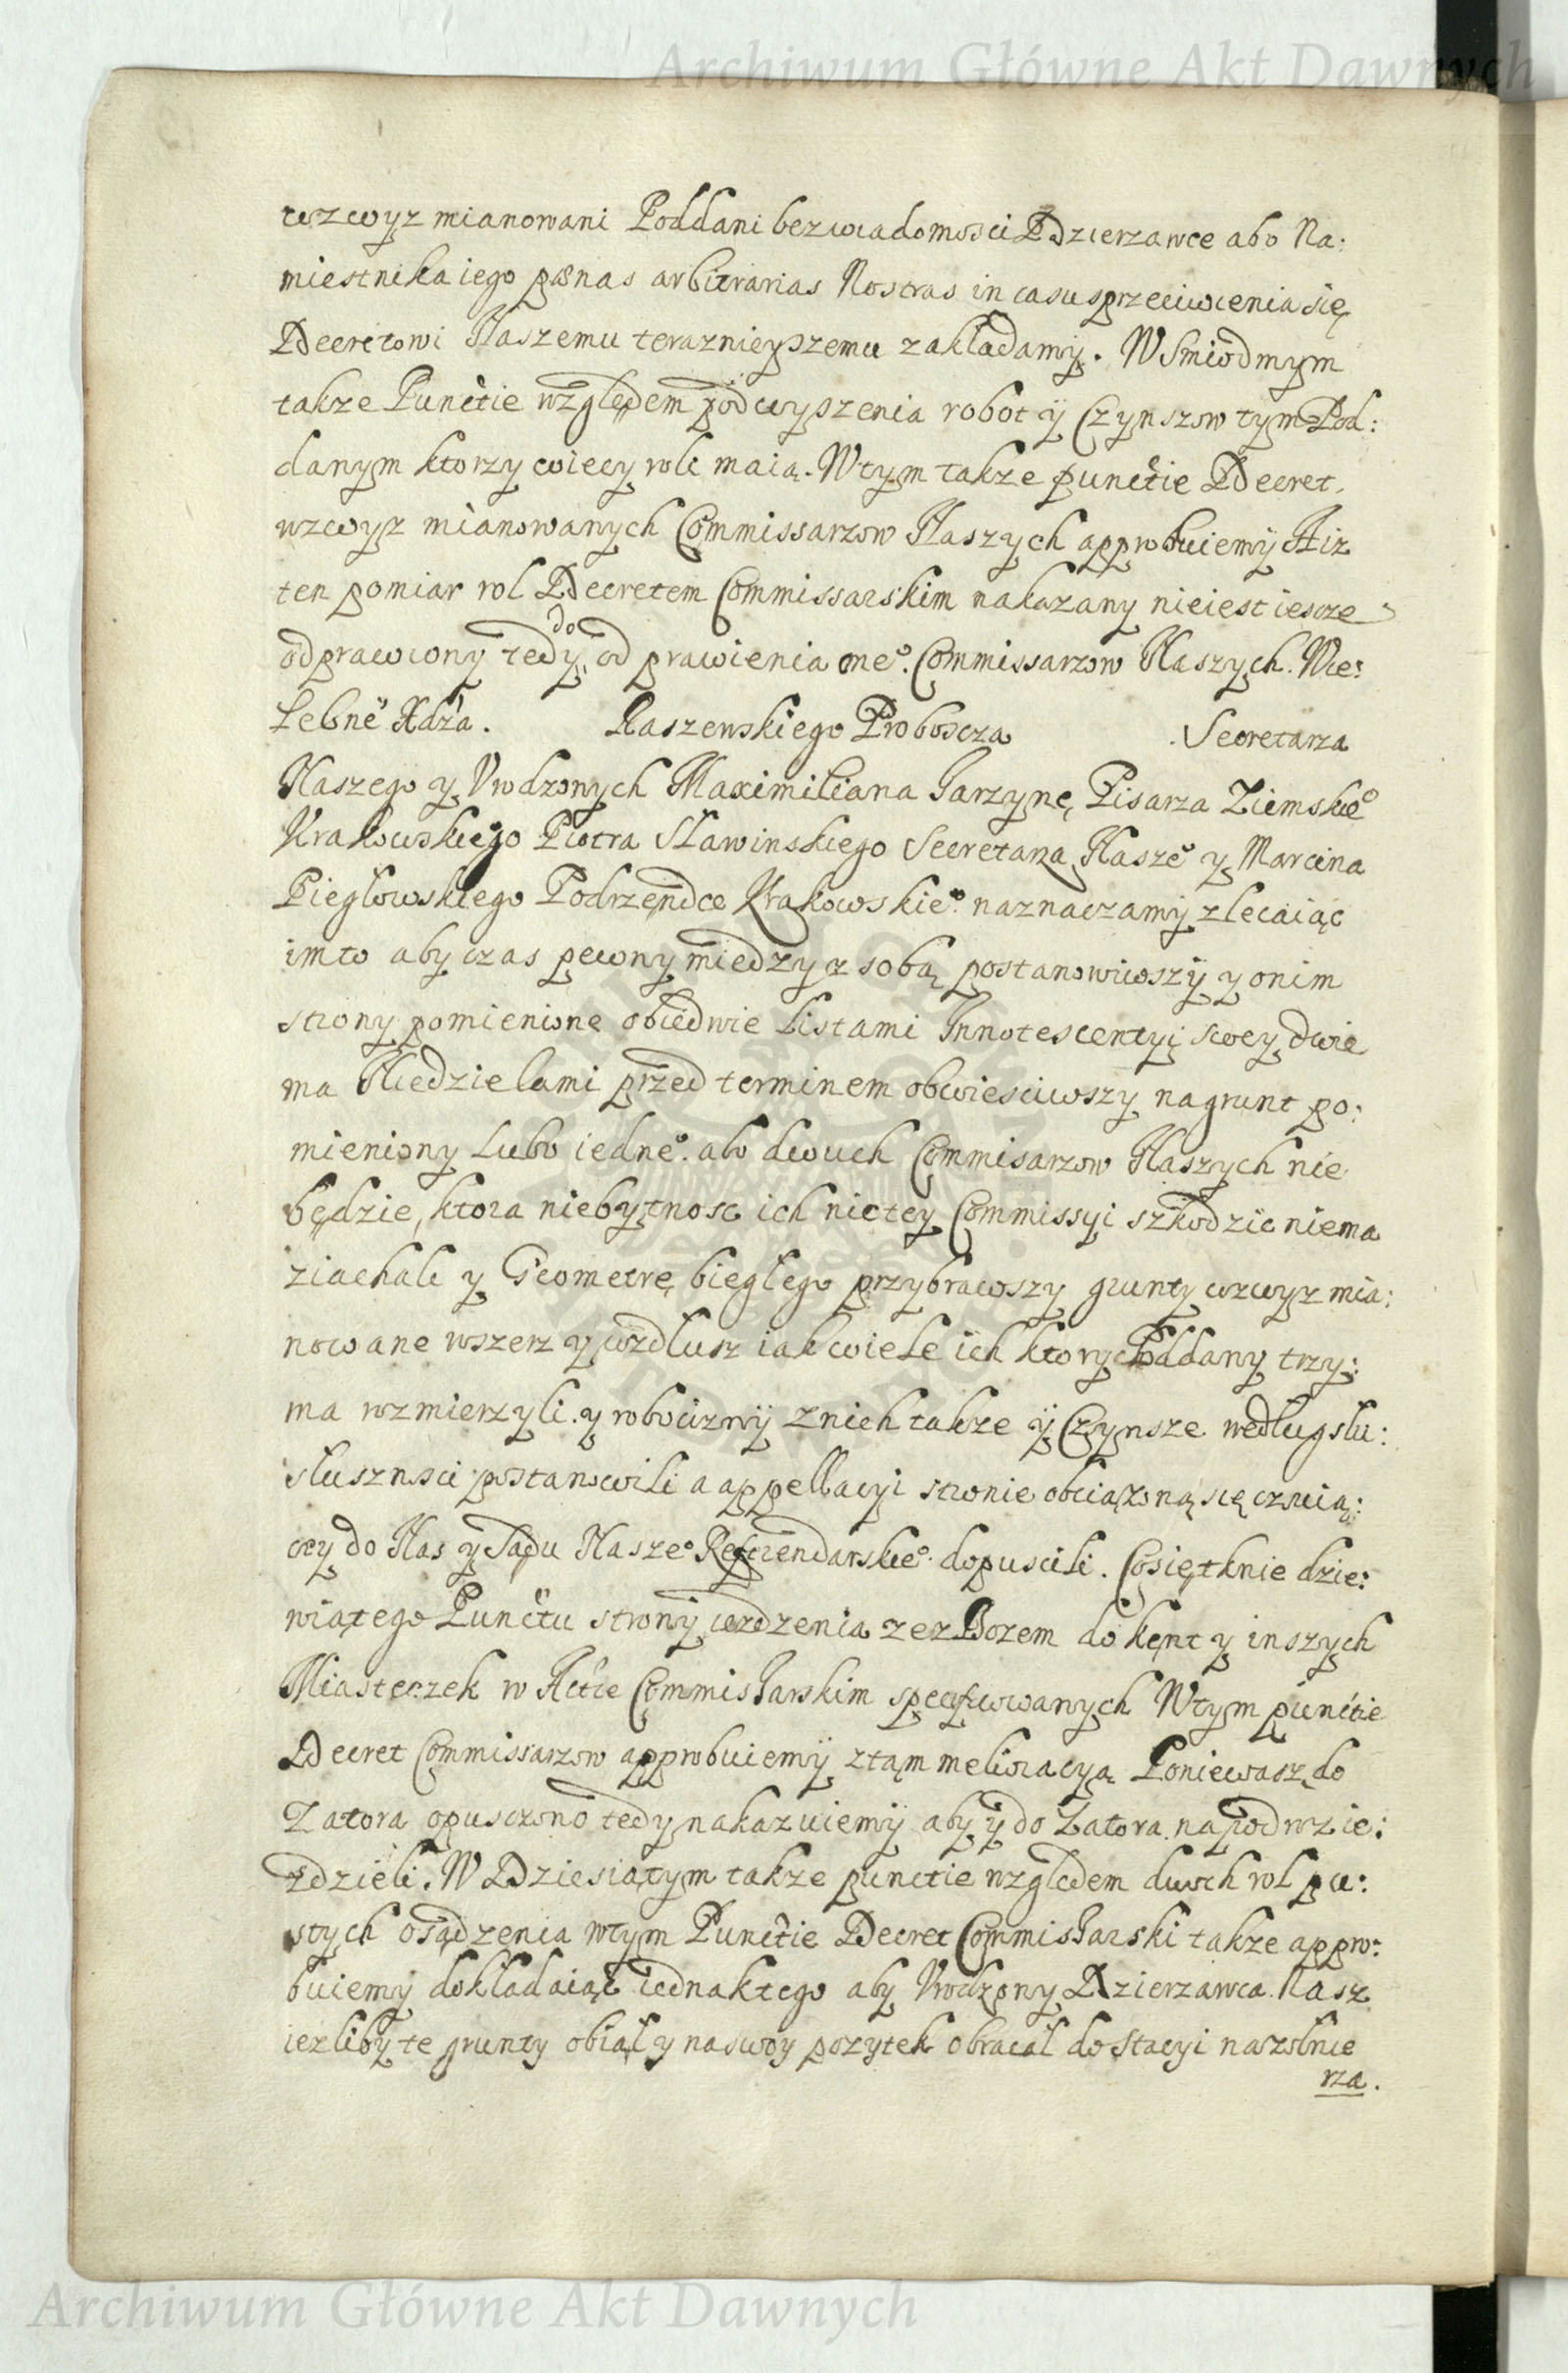 Archiwum Główne Akt Dawnych
wzwyz mianowani Poddani bez wiadomosci Dzierzawce abo Na:
miestnika iego pænas arbitrarias Nostras in casu sprzeciwienia się
Decretowi Naszemu teraznieyszemu zakładamy. W Smiodmym
takze Punctie względem podwyszenia robot ÿ Czynszow tym Pod:
danym ktorzy wiecy roli maią. W tym takze punctie Decret
wzwyz mianowanych Commissarzow Naszych approbuiemÿ A iz
ten pomiar rol Decretem Commissarskim nakazany nieiest iescze
odprawiony tedy do od prawienia oneº. Commissarzow Naszych. Wie:
lebnê Xdza. Raszewskiego Proboscza Secretarza
Naszego y Vrodzonych Maximiliana Jarzynę Pisarza Ziemskieº
Krakowskiego Piotra Sławinskiego Secretarza Naszeº y Marcina
Piegłowskiego Podrzendce Krakowskieº. naznaczamÿ zlecaiąc
im to aby czas pewny miedzy z sobą postanowiwszÿ y onim
strony pomienione obiedwie Listami Innotescentyi swey dwie
ma Niedzielami przed terminem obwiesciwszy na grunt po:
mieniony Lubo iedneº. abo dwuch Commisarzow Naszych nie
będzie, ktora niebytnosc ich nic tey Commissyi szkodzic niema
ziachali y Geometrę biegłego przybrawszy grunty wzwyz mia:
nowane wszerz y wzdłusz iak wiele ich ktory Poddany trzy:
ma wzmierzyli. y robociznÿ znich takze ÿ Czynsze według słu:
słusznosci postanowili a appellacyi stronie obciązoną się czuią:
cey do Nas y Sądu Naszeº Referendarskieº. dopuscili. Cosiętknie dzie:
wiątego Punctu stronÿ iezdzenia ze zbozem do Kent y inszych
Miasteczek w Actie Commissarskim specifiwowanych W tym punctie
Decret Commissarzow approbuiemÿ z tąm melioracyą Poniewasz do
Zatora opusczono tedy nakazuiemÿ aby ÿ do Zatora na podwozie:
zdzieli. W Dziesiątym takze punctie względem dwuch rol pu:
stych osądzenia w tym Punctie Decret Commissarski takze appro:
buiemy dokładaiąc iednak tego aby Vrodzony Dzierzawca Nasz
iezliby te grunty obiął y na swoy pozytek obracał do stacyi na zołnie
rza.
Archiwum Główne Akt Dawnych